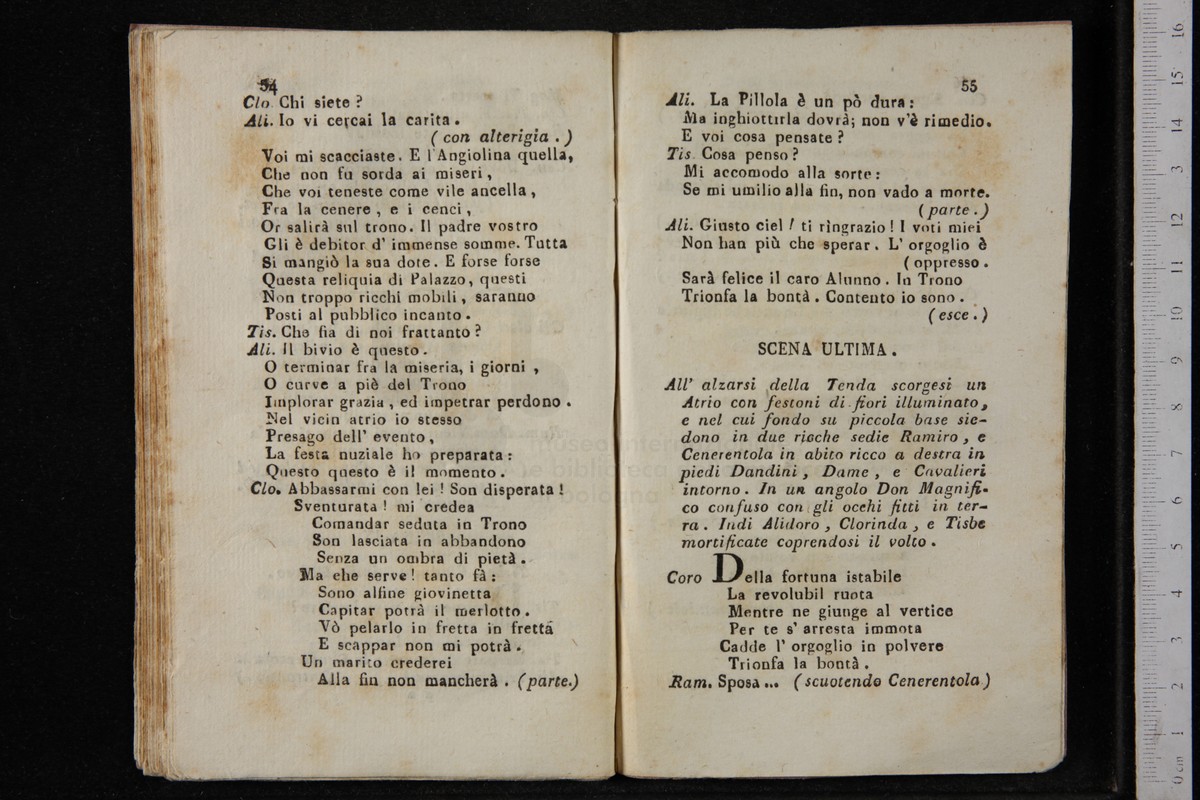 54
Clo. Chi siete ?
Ali. Io vi cercai la carita .
( con alterigia . )
Voi mi scacciaste. E l'Angiolina quella,
Che non fu sorda ai miseri ,
Che voi teneste come vile ancella ,
Fra la cenere , e i cenci ,
Or salirà sul trono. Il padre vostro
Gli è debitor d' immense somme. Tutta
Si mangiò la sua dote. E forse forse
Questa reliquia di Palazzo, questi
Non troppo ricchi mobili , saranno
Posti al pubblico incanto .
Tis. Che fia di noi frattanto ?
Ali. Il bivio è questo .
O terminar fra la miseria, i giorni ,
O curve a piè del Trono
Implorar grazia , ed impetrar perdono .
Nel vicin atrio io stesso
Presago dell' evento ,
La festa nuziale ho preparata :
Questo questo è il momento .
Clo. Abbassarmi con lei ! Son disperata !
Sventurata ! mi credea
Comandar seduta in Trono
Son lasciata in abbandono
Senza un ombra di pietà .
Ma che serve ! tanto fà :
Sono alfine giovinetta
Capitar potrà il merlotto .
Vò pelarlo in fretta in fretta
E scappar non mi potrà .
Un marito crederei
Alla fin non mancherà . (parte.)
55
Ali. La Pillola è un pò dura :
Ma inghiottirla dovrà; non v'è rimedio.
E voi cosa pensate ?
Tis. Cosa penso ?
Mi accomodo alla sorte :
Se mi umilio alla fin, non vado a morte.
( parte . )
Ali. Giusto ciel ! ti ringrazio ! I voti miei
Non han più che sperar . L' orgoglio è
( oppresso .
Sarà felice il caro Alunno . In Trono
Trionfa la bontà . Contento io sono .
( esce . )
SCENA ULTIMA .
All' alzarsi della Tenda scorgesi un
Atrio con festoni di fiori illuminato ,
e nel cui fondo su piccola base sie-
dono in due ricche sedie Ramiro , e
Cenerentola in abito ricco a destra in
piedi Dandini , Dame , e Cavalieri
intorno . In un angolo Don Magnifi-
co confuso con gli occhi fitti in ter-
ra . Indi Alidoro , Clorinda , e Tisbe
mortificate coprendosi il volto .
Coro Della fortuna istabile
La revolubil ruota
Mentre ne giunge al vertice
Per te s' arresta immota
Cadde l' orgoglio in polvere
Trionfa la bontà .
Ram. Sposa ... ( scuotendo Cenerentola )
0 cm 1 2 3 4 5 6 7 8 9 10 11 12 13 14 15 16